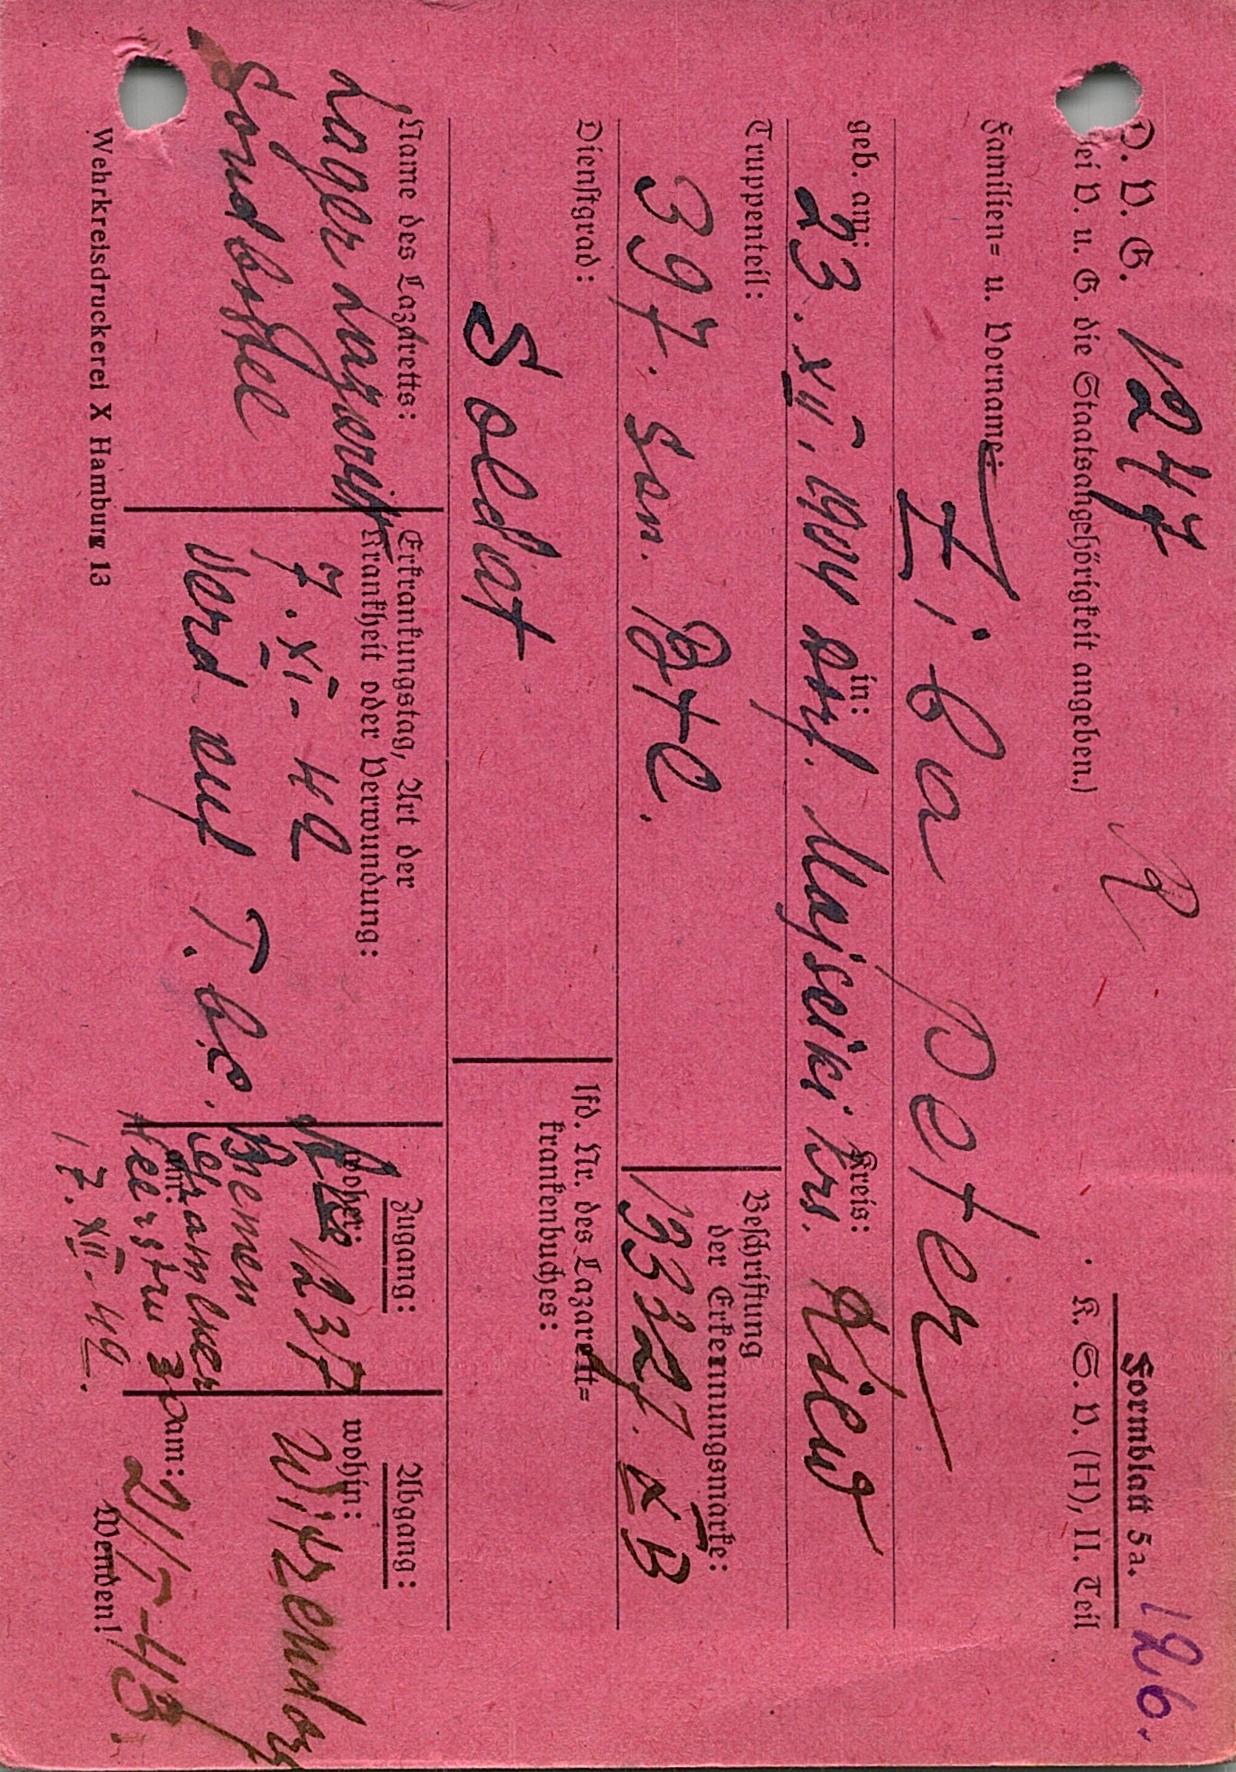 D. V. G. 1247
126.
Formblatt 5a.
(Bei V. u. G. die Staatsangehörigkeit angeben.)
K. S. V. (H), II. Teil
Familien= u. Vorname:
Ziba Peter
geb. am: in: Kreis:
23. XII. 1904 dorf. Majseiki Krs. Kiew
Truppenteil:
Beschriftung
der Erkennungsmarke:
397. San. Btl.
133327. XB
Dienstgrad:
lfd. Nr. des Lazarett=
krankenbuches:
Soldat
Name des Lazaretts:
Lager Lazarett
Sandbostel
Erkrankungstag, Art der
Krankheit oder Verwundung:
7. XI - 42
Verd auf T.b.c.
Zugang:
woher:
1237
Bremen
am:
17. XII - 42.
Abgang:
wohin:
Witzendorf
am:
21/5-43.
Wehrkreisdruckerei X Hamburg 13
Wenden!